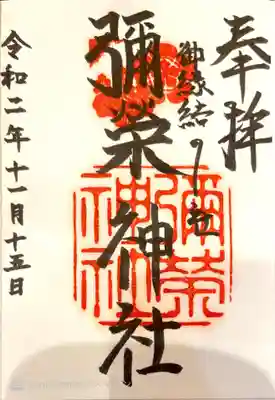 奉拝
御縁結び之社
彌榮神社
彌榮
神社
令和二年十一月十五日